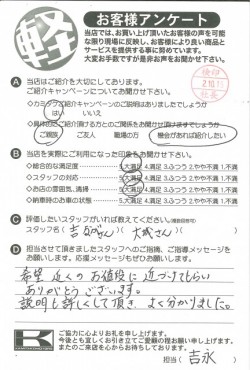 軽
お客様アンケート
当店では、お買い上げ頂いたお客様の声を可能
な限り現場に反映し、お客様により良い商品と
サービスを提供する事に努めています。
大変お手数ですが是非お声をお聞かせ下さい。
A 当店はご紹介を大切にしてあります。
ご紹介キャンペーンについてお聞かせ下さい。
はい いいえ
ご親族 ご友人 職場の方 機会があれば紹介したい
B 当店を実際にご利用になった印象をお聞かせ下さい。
◇総合的な満足度 5.大満足 4.満足 3.ふつう 2.やや不満 1.不満
◇スタッフの対応 5.大満足 4.満足 3.ふつう 2.やや不満 1.不満
◇お店の雰囲気、清掃 5.大満足 4.満足 3.ふつう 2.やや不満 1.不満
◇納車時のお車の状態 5.大満足 4.満足 3.ふつう 2.やや不満 1.不満
C 評価したいスタッフがいれば教えてください。
スタッフ名( 吉永さん )( 大城さん )
D 担当させて頂きましたスタッフへのご指摘、ご指導メッセージを
お願いします。応援メッセージもぜひお願いします。
希望 近くの お値段に 近づけてもらい
ありがとう ございます。
説明も 詳しくして頂き よく分かりました。
K
ご協力に心よりお礼を申し上げます。
今後とも宜しくお引き立てご愛顧の程お願い申し上げます。
またのご来店を心からお待ちしております。
担当( 吉永 )